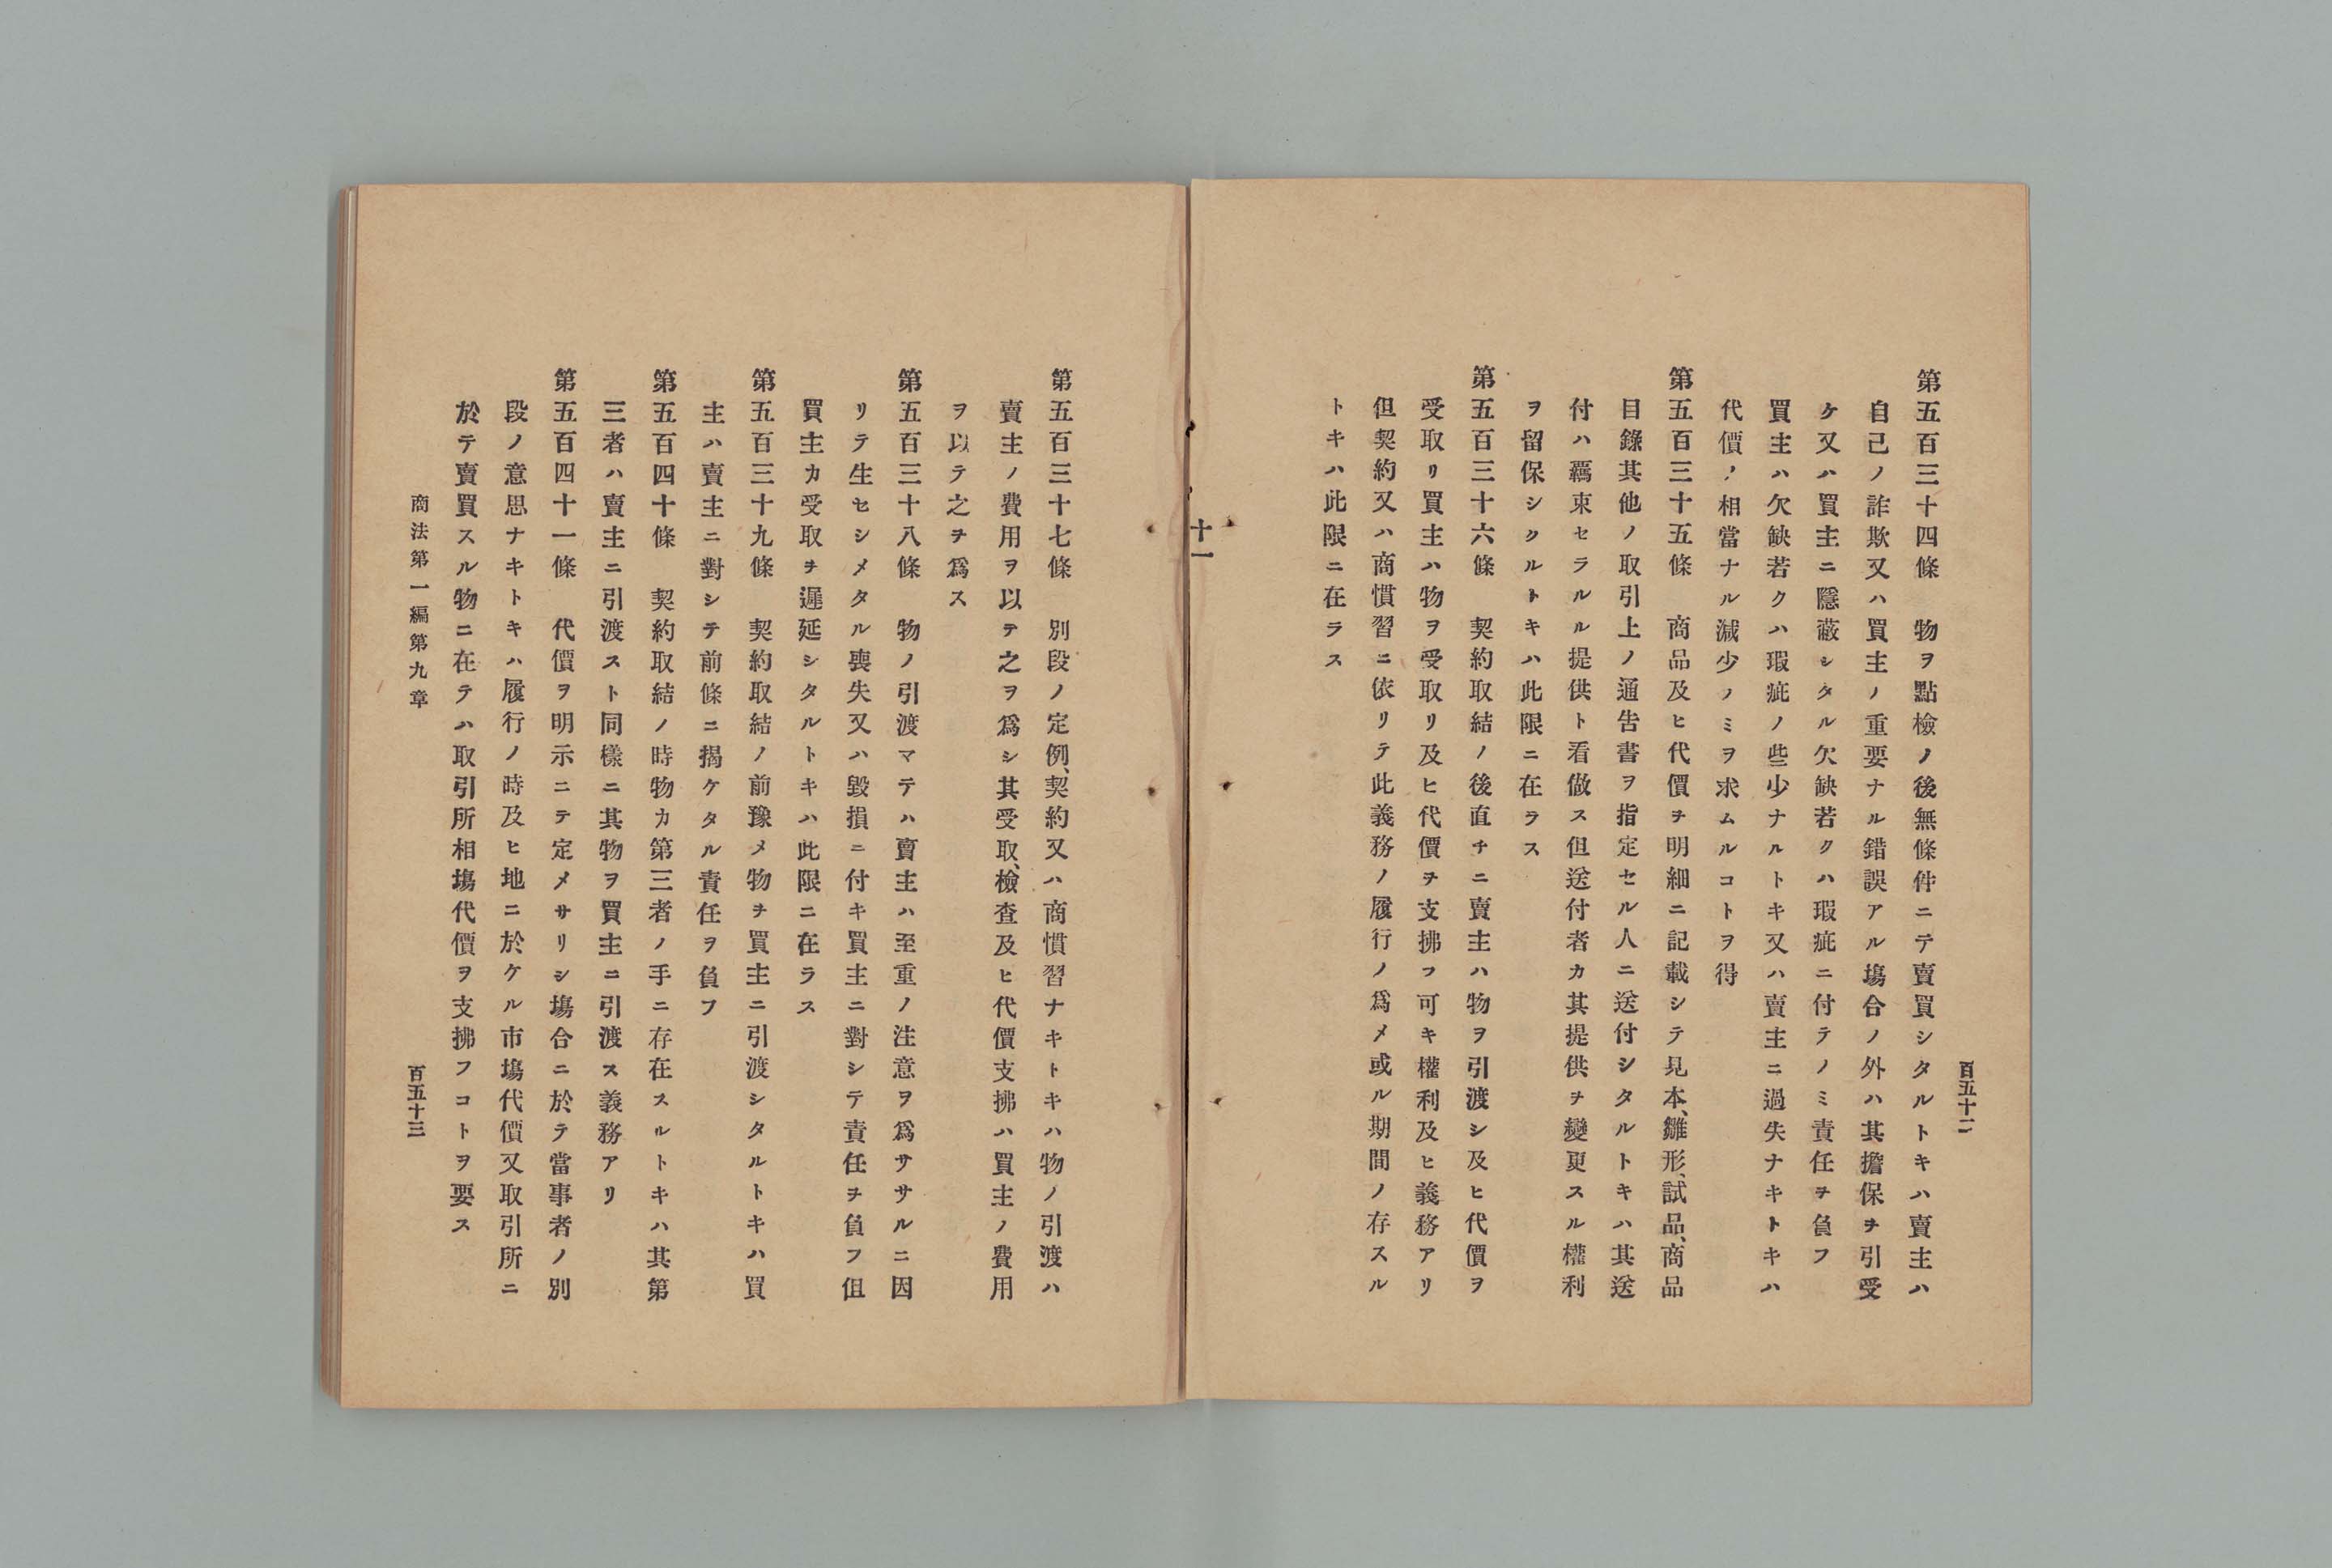 百五十二
第五百三十四條　物ヲ點檢ノ後無條件ニテ賣買シタルトキハ賣主ハ
自己ノ詐欺又ハ買主ノ重要ナル錯誤アル塲合ノ外ハ其擔保ヲ引受
ケ又ハ買主ニ隱蔽シタル欠缺若クハ瑕疵ニ付テノミ責任ヲ負フ
買主ハ欠缺若クハ瑕疵ノ些少ナルトキ又ハ賣主ニ過失ナキトキハ
代價ノ相當ナル減少ノミヲ求ムルコトヲ得
第五百三十五條　商品及ヒ代價ヲ明細ニ記載シテ見本、雛形、試品、商品
目錄其他ノ取引上ノ通吿書ヲ指定セル人ニ送付シタルトキハ其送
付ハ覊束セラルル提供ト看做ス但送付者カ其提供ヲ變更スル權利
ヲ留保シタルトキハ此限ニ在ラス
第五百三十六條　契約取結ノ後直チニ賣主ハ物ヲ引渡シ及ヒ代價ヲ
受取リ買主ハ物ヲ受取リ及ヒ代價ヲ支拂フ可キ權利及ヒ義務アリ
但契約又ハ商慣習ニ依リテ此義務ノ履行ノ爲メ或ル期間ノ存スル
トキハ此限ニ在ラス
十一
第五百三十七條　別段ノ定例、契約又ハ商慣習ナキトキハ物ノ引渡ハ
賣主ノ費用ヲ以テ之ヲ爲シ其受取、檢查及ヒ代價支拂ハ買主ノ費用
ヲ以テ之ヲ爲ス
第五百三十八條　物ノ引渡マテハ賣主ハ至重ノ注意ヲ爲サヽルニ因
リテ生セシメタル喪失又ハ毀損ニ付キ買主ニ對シテ責任ヲ負フ但
買主カ受取ヲ遲延シタルトキハ此限ニ在ラス
第五百三十九條　契約取結ノ前豫メ物ヲ買主ニ引渡シタルトキハ買
主ハ賣主ニ對シテ前條ニ揭ケタル責任ヲ負フ
第五百四十條　契約取結ノ時物カ第三者ノ手ニ存在スルトキハ其第
三者ハ賣主ニ引渡スト同樣ニ其物ヲ買主ニ引渡ス義務アリ
第五百四十一條　代價ヲ明示ニテ定メサリシ塲合ニ於テ當事者ノ別
段ノ意思ナキトキハ履行ノ時及ヒ地ニ於ケル市塲代價又取引所ニ
於テ賣買スル物ニ在テハ取引所相塲代價ヲ支拂フコトヲ要ス
商法第一編第九章
百五十三